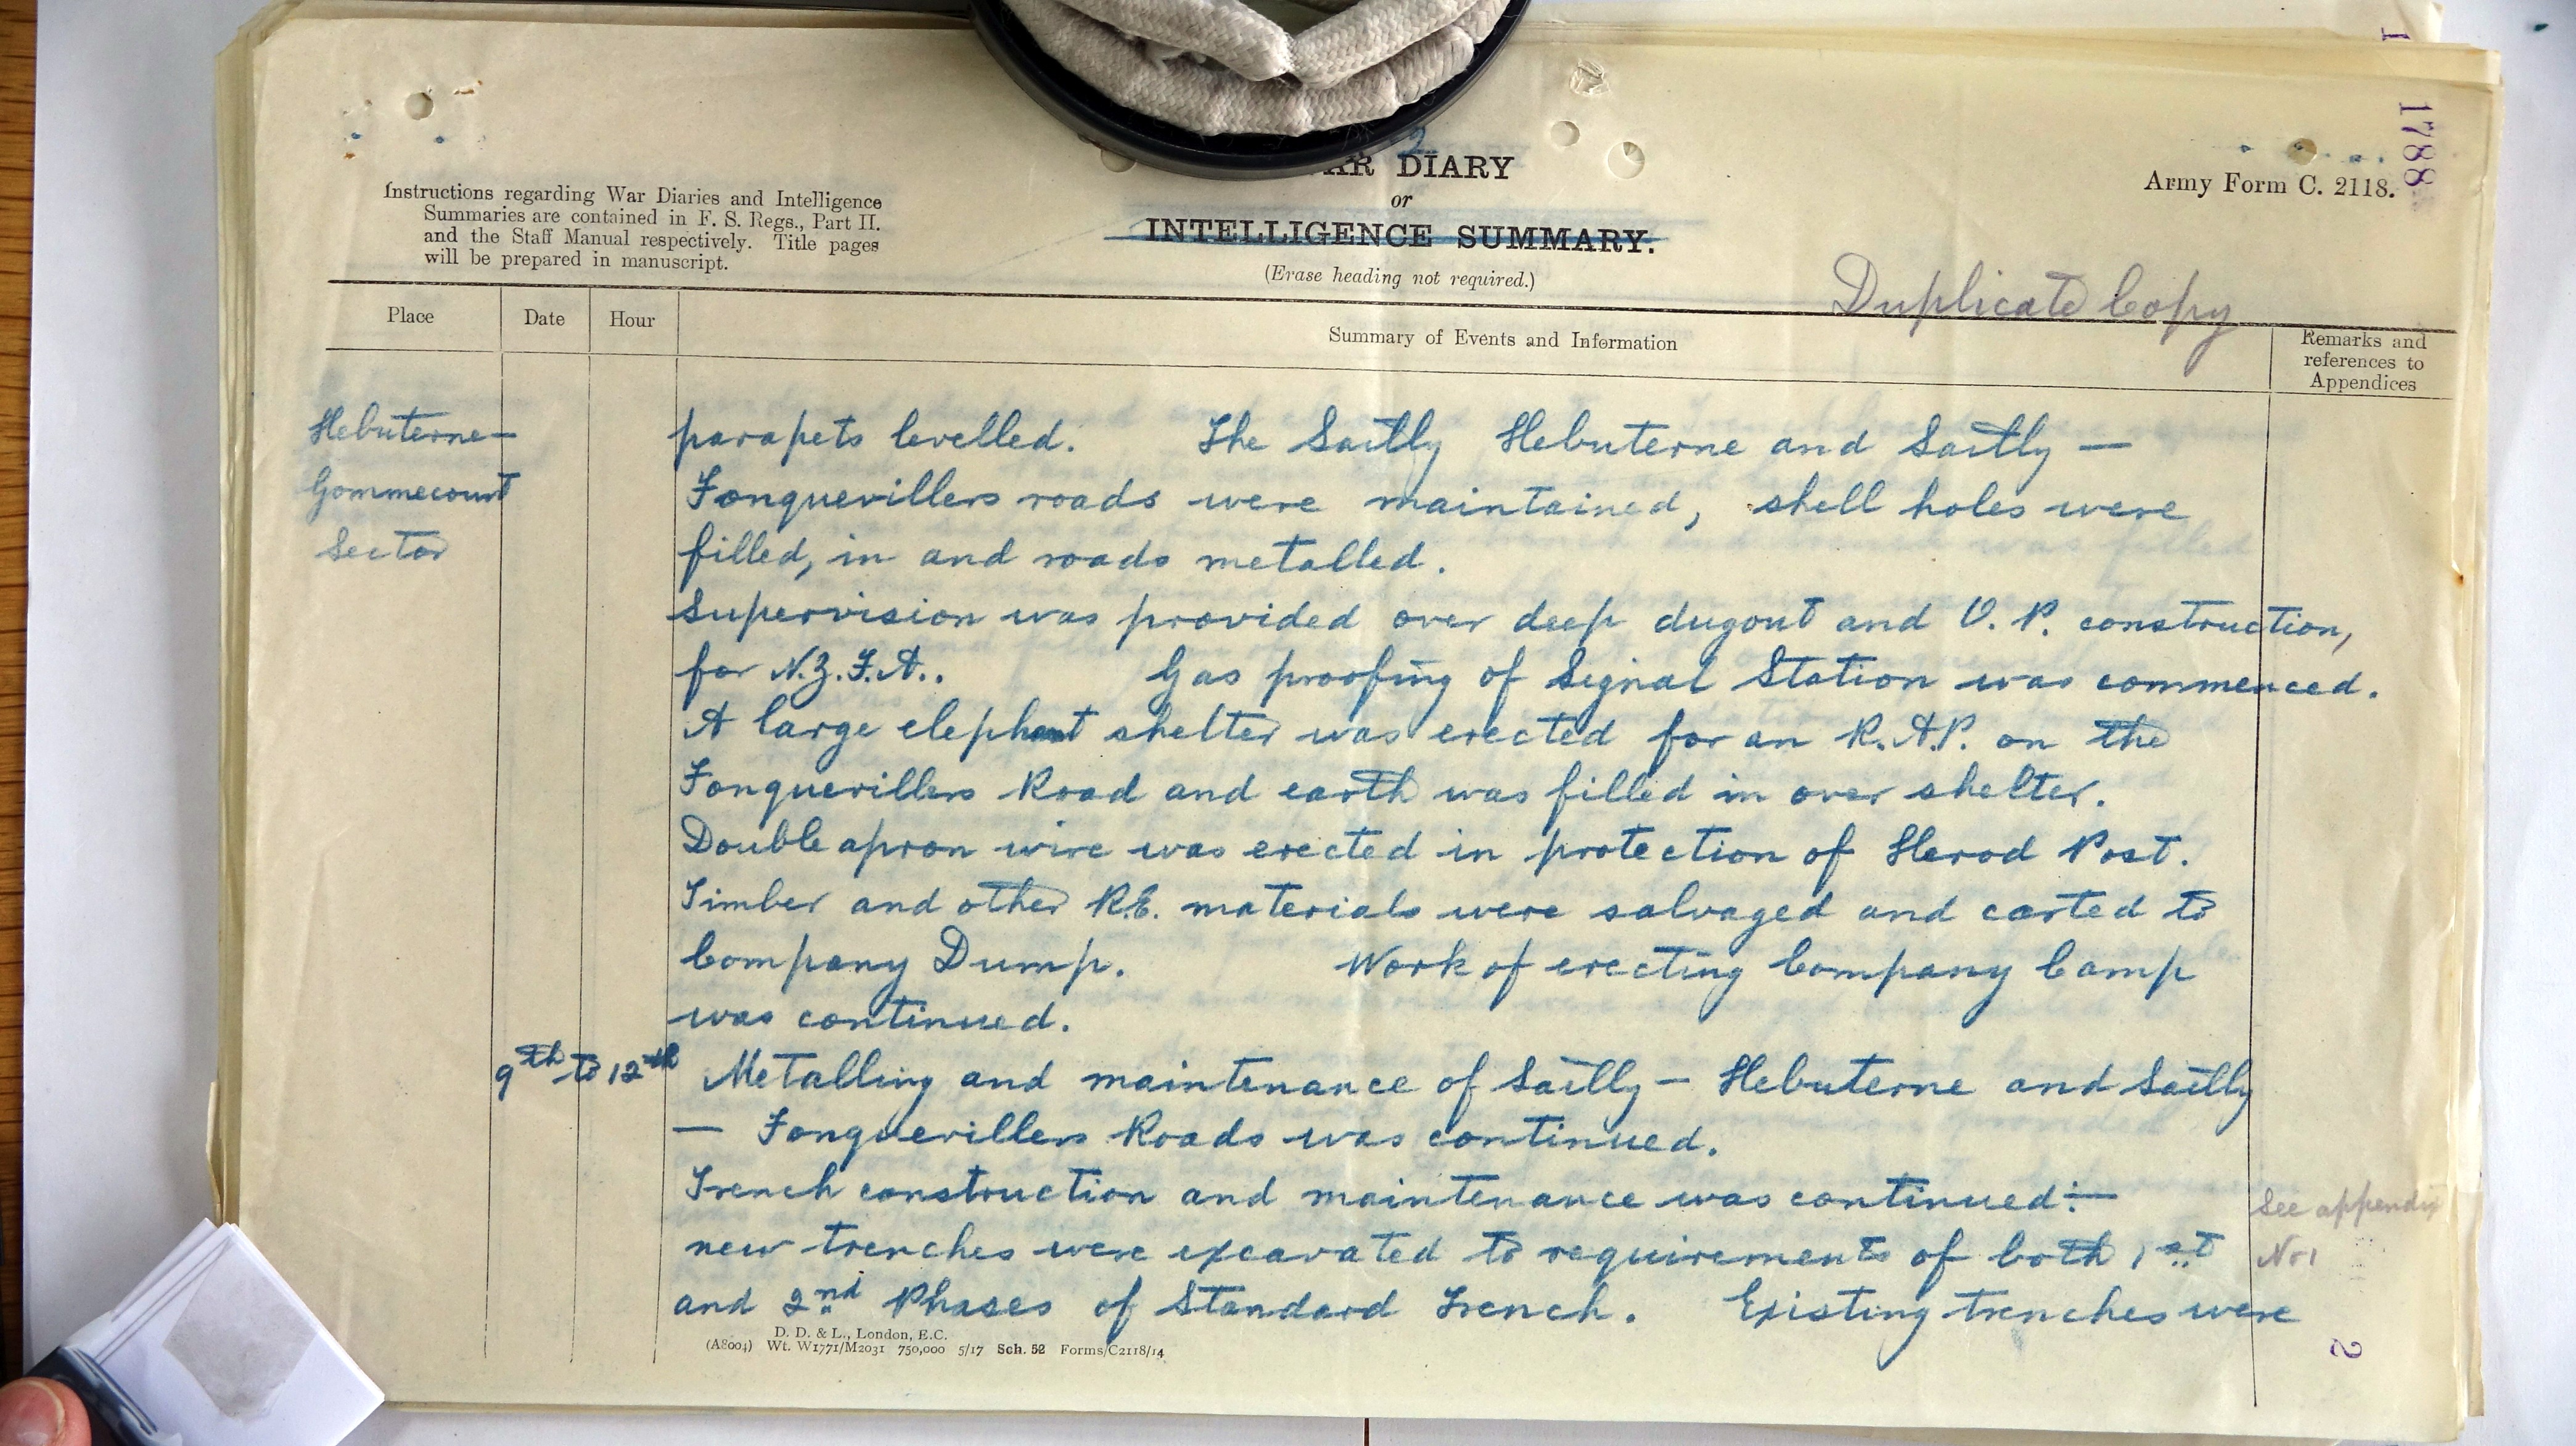 2
WAR DIARY
or
INTELLIGENCE SUMMARY.
(Erase heading not required.)
Instructions regarding War Diaries and Intelligence
Summaries are contained in F. S. Regs., Part II.
and the Staff Manual respectively. Title pages
will be prepared in manuscript.
Army Form C. 2118.
1788
Duplicate Copy
Place
Date
Hour
Summary of Events and Information
Remarks and
references to
Appendices
Hebuterne—
Gommecourt
Sector
parapets levelled. The Sailly Hebuterne and Sailly —
Fonquevillers roads were maintained, shell holes were
filled, in and roads metalled.
Supervision was provided over deep dugout and O.P. construction,
for N.Z.F.A.. Gas proofing of Signal Station was commenced.
A large elephant shelter was erected for an R.A.P. on the
Fonquevillers Road and earth was filled in over shelter.
Double apron wire was erected in protection of Herod Post.
Timber and other R.E. materials were salvaged and carted to
Company Dump. Work of erecting Company Camp
was continued.
9th to 12th Metalling and maintenance of Sailly — Hebuterne and Sailly
— Fonquevillers Roads was continued.
Trench construction and maintenance was continued:—
new trenches were excavated to requirements of both 1st
and 2nd Phases of Standard Trench. Existing trenches were
See appendix
No1
D. D. & L., London, E.C.
(A8004) Wt. W1771/M2031 750,000 5/17 Sch. 52 Forms/C2118/14
2